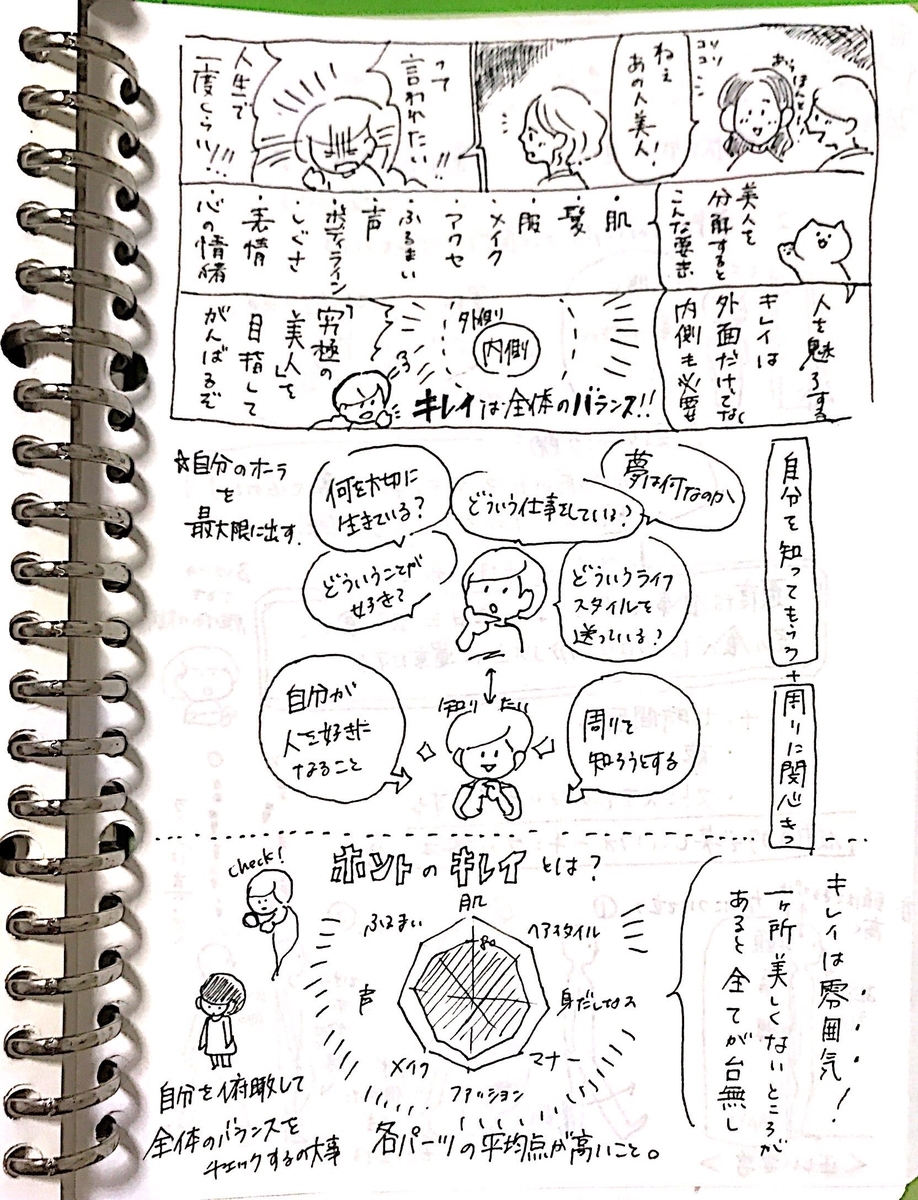 コソコソ
あらほんと
ねぇ
あの人美人!
って
言われたい!!
人生で
一度くらい!!!
美人を
分解すると
こんな要素
・肌
・髪
・服
・メイク
・アクセ
・ふるまい
・声
・ボディライン
・しぐさ
・表情
・心の情緒
人を魅了する
キレイは
外面だけでなく
内側も必要
外側
内側
キレイは全体のバランス!!
「究極の
美人」を
目指して
がんばるぞ
自分を知ってもらう
+
周りに関心をもつ
☆自分のオーラ
を
最大限に出す.
何を大切に
生きている?
どういう仕事をしている?
夢は何なのか
どういうことが
好き?
どういうライフ
スタイルを
送っている?
知り たい
自分が
人を好きに
なること
周りを
知ろうとする
ホントのキレイとは?
check!
肌
ヘアスタイル
身だしなみ
マナー
ファッション
メイク
声
ふるまい
80
各パーツの平均点が高いこと。
キレイは雰囲気!
一ヶ所美しくないところが
あると全てが台無し
自分を俯瞰して
全体のバランスを
チェックするの大事